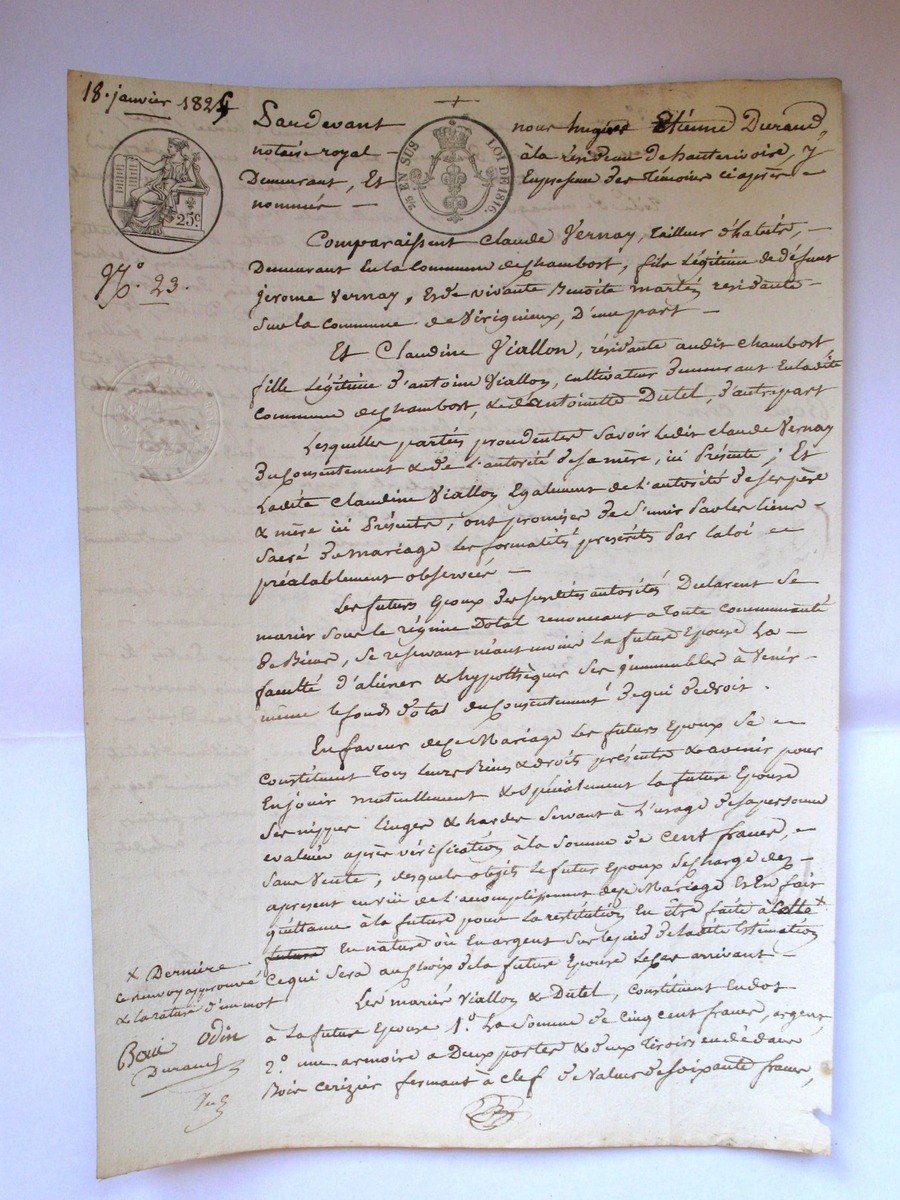 18. janvier 1825
Pardevant nous hugues Etienne Durand,
notaire royal à la résidence de hauterivoire, y
Demeurant, Et En presence des Témoins ci après
nommés
25 EN SUS LOI DE 1816.
25c.
N.º 23.
Comparaissent Claude Vernay, tailleur d'habits,
Demeurant En la Commune de Chambost, fils Légitime de défunt
jerome Vernay, Et de vivante Benoite martin residante
Sur la Commune de Virigneux, D'une part
Et Claudine Viallon, résidante audit Chambost
fille Légitime d'antoine Viallon, cultivateur Demeurant En ladite
Commune de Chambost, & de antoinette Dutel, D'autre part
Lesquelles parties procedentes Savoir Ledit Claude Vernay
Du Consentement & de L'autorité de sa mère, ici Présente ; Et
Ladite Claudine Viallon Egalement de L'autorité de ses père
& mère ici Présents, ont promises de s'unir Par les liens
Sacré du mariage les formalités prescrites Par la loi
préalablement observées
Les futurs Epoux des susdites autorités Déclarent Se
marier Sous le régime Dotal renoncant à Toute Communauté
de Biens, Se reservant néantmoins La future Epouse La
faculté d'aliéner & hypothèquer Ses immeubles à Venir
même le fonds Dotal du Consentement de qui de droit.
En faveur de ce Mariage Les futurs Epoux Se
Constituent Tous leurs Biens & droits présents & avenir pour
En jouir mutuellement & spécialement la future Epouse
Ses nippes linges & hardes Servant à L'usage de sa personne
evalués après vérification à la Somme de cent francs,
Sans Vente, desquels objets Le futur Epoux Se charge dez
apresent en vüe de l'accomplissement de ce Mariage Et En fait
quittance à la future pour La restitution En être faite à Cette x
future En nature où En argent Sur le pied de ladite Estimation
Ce qui Sera au choix de la future Epouse Le cas arrivant
x Dernière
Ce renvoy approuvé
& la rature d'un mot
Odin
Durand
Les mariés Viallon & Dutel, Constituent En dot
à La future Epouse 1.º La Somme de Cinq cent francs, argent,
2.º une armoire a Deux portes & deux Tiroirs en dedans
Bois Cerizier fermant à clef de Valeur de soixante francs,